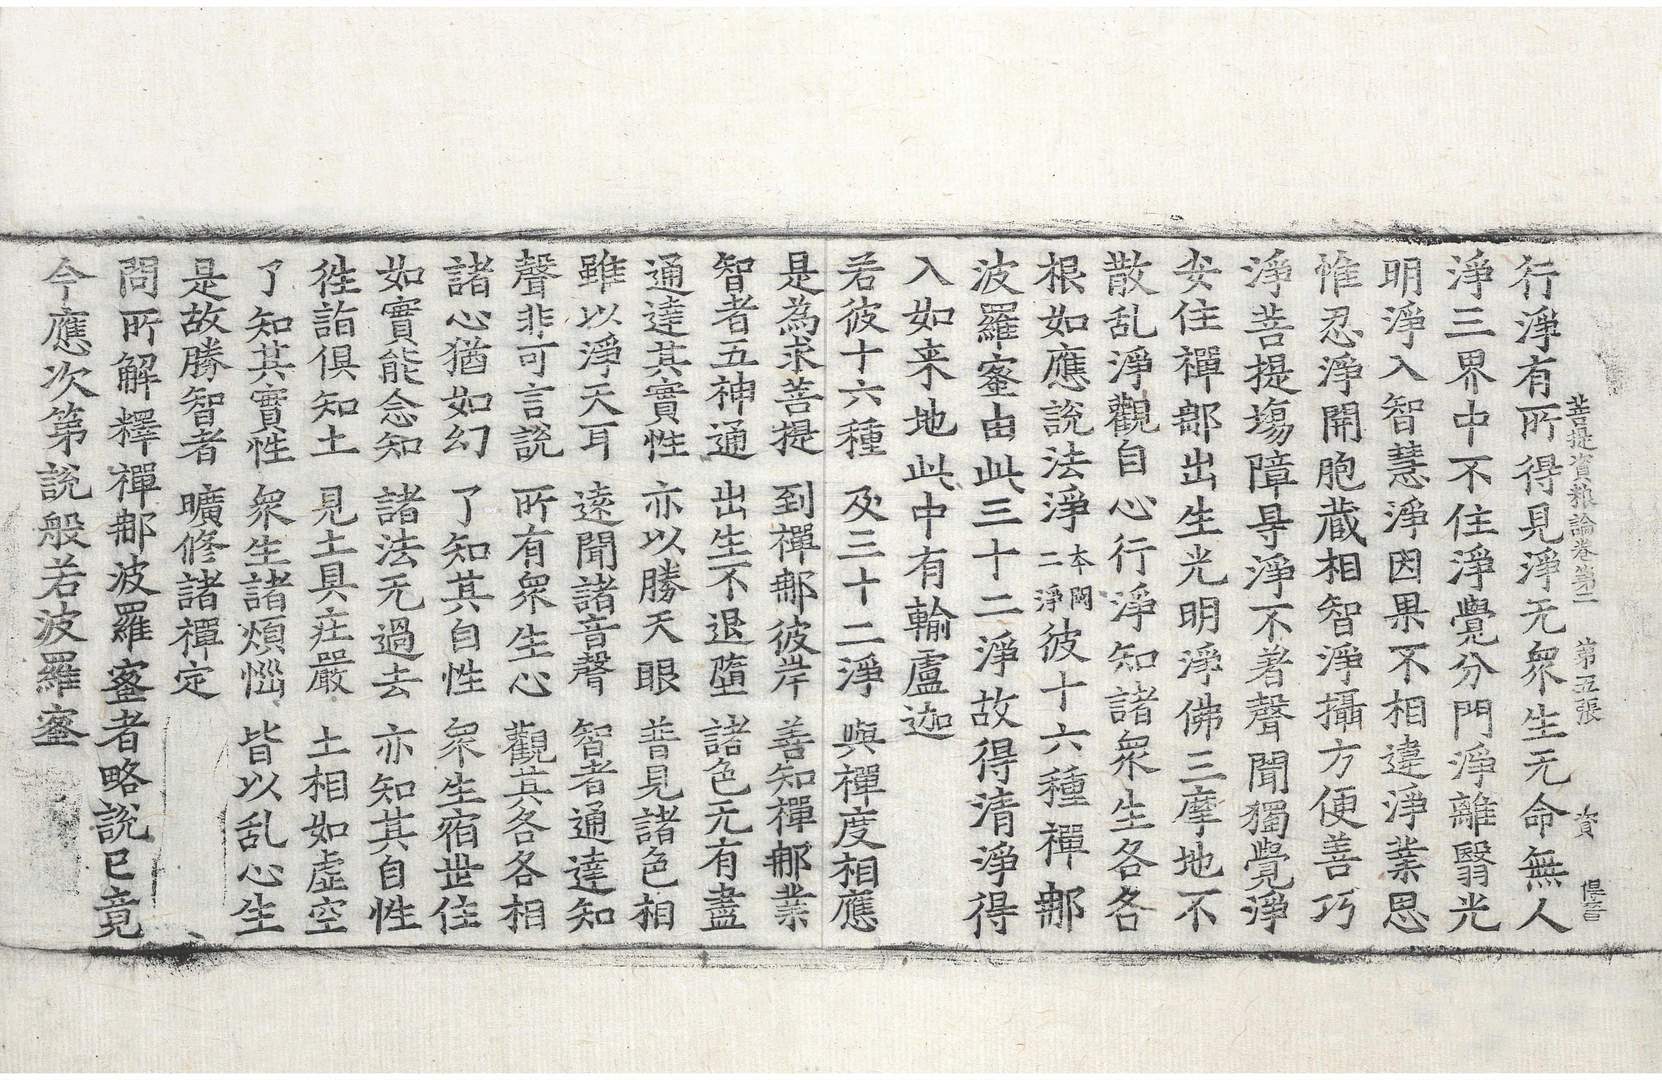 菩提資粮論卷第二　第五張　資
行淨有所得見淨无衆生无命無人
淨三界中不住淨覺分門淨離翳光
明淨入智慧淨因果不相違淨業思
惟忍淨開胞藏相智淨攝方便善巧
淨菩提場障㝵淨不著聲聞獨覺淨
安住禪那出生光明淨佛三摩地不
散乱淨觀自心行淨知諸衆生各各
根如應說法淨本闕二淨彼十六種禪那
波羅蜜由此三十二淨故得清淨得
入如来地此中有輸盧迦
若彼十六種　及三十二淨　與禪度相應
是為求菩提　到禪那彼岸　善知禪那業
智者五神通　出生不退墮　諸色无有盡
通達其實性　亦以勝天眼　普見諸色相
雖以淨天耳　遠聞諸音聲　智者通達知
聲非可言說　所有衆生心　觀其各各相
諸心猶如幻　了知其自性　衆生宿世住
如實能念知　諸法无過去　亦知其自性
徃詣俱知土　見土具莊嚴　土相如虛空
了知其實性　衆生諸煩惱　皆以乱心生
是故勝智者　曠修諸禪定
問所解釋禪那波羅蜜者略說已竟
今應次第說般若波羅蜜